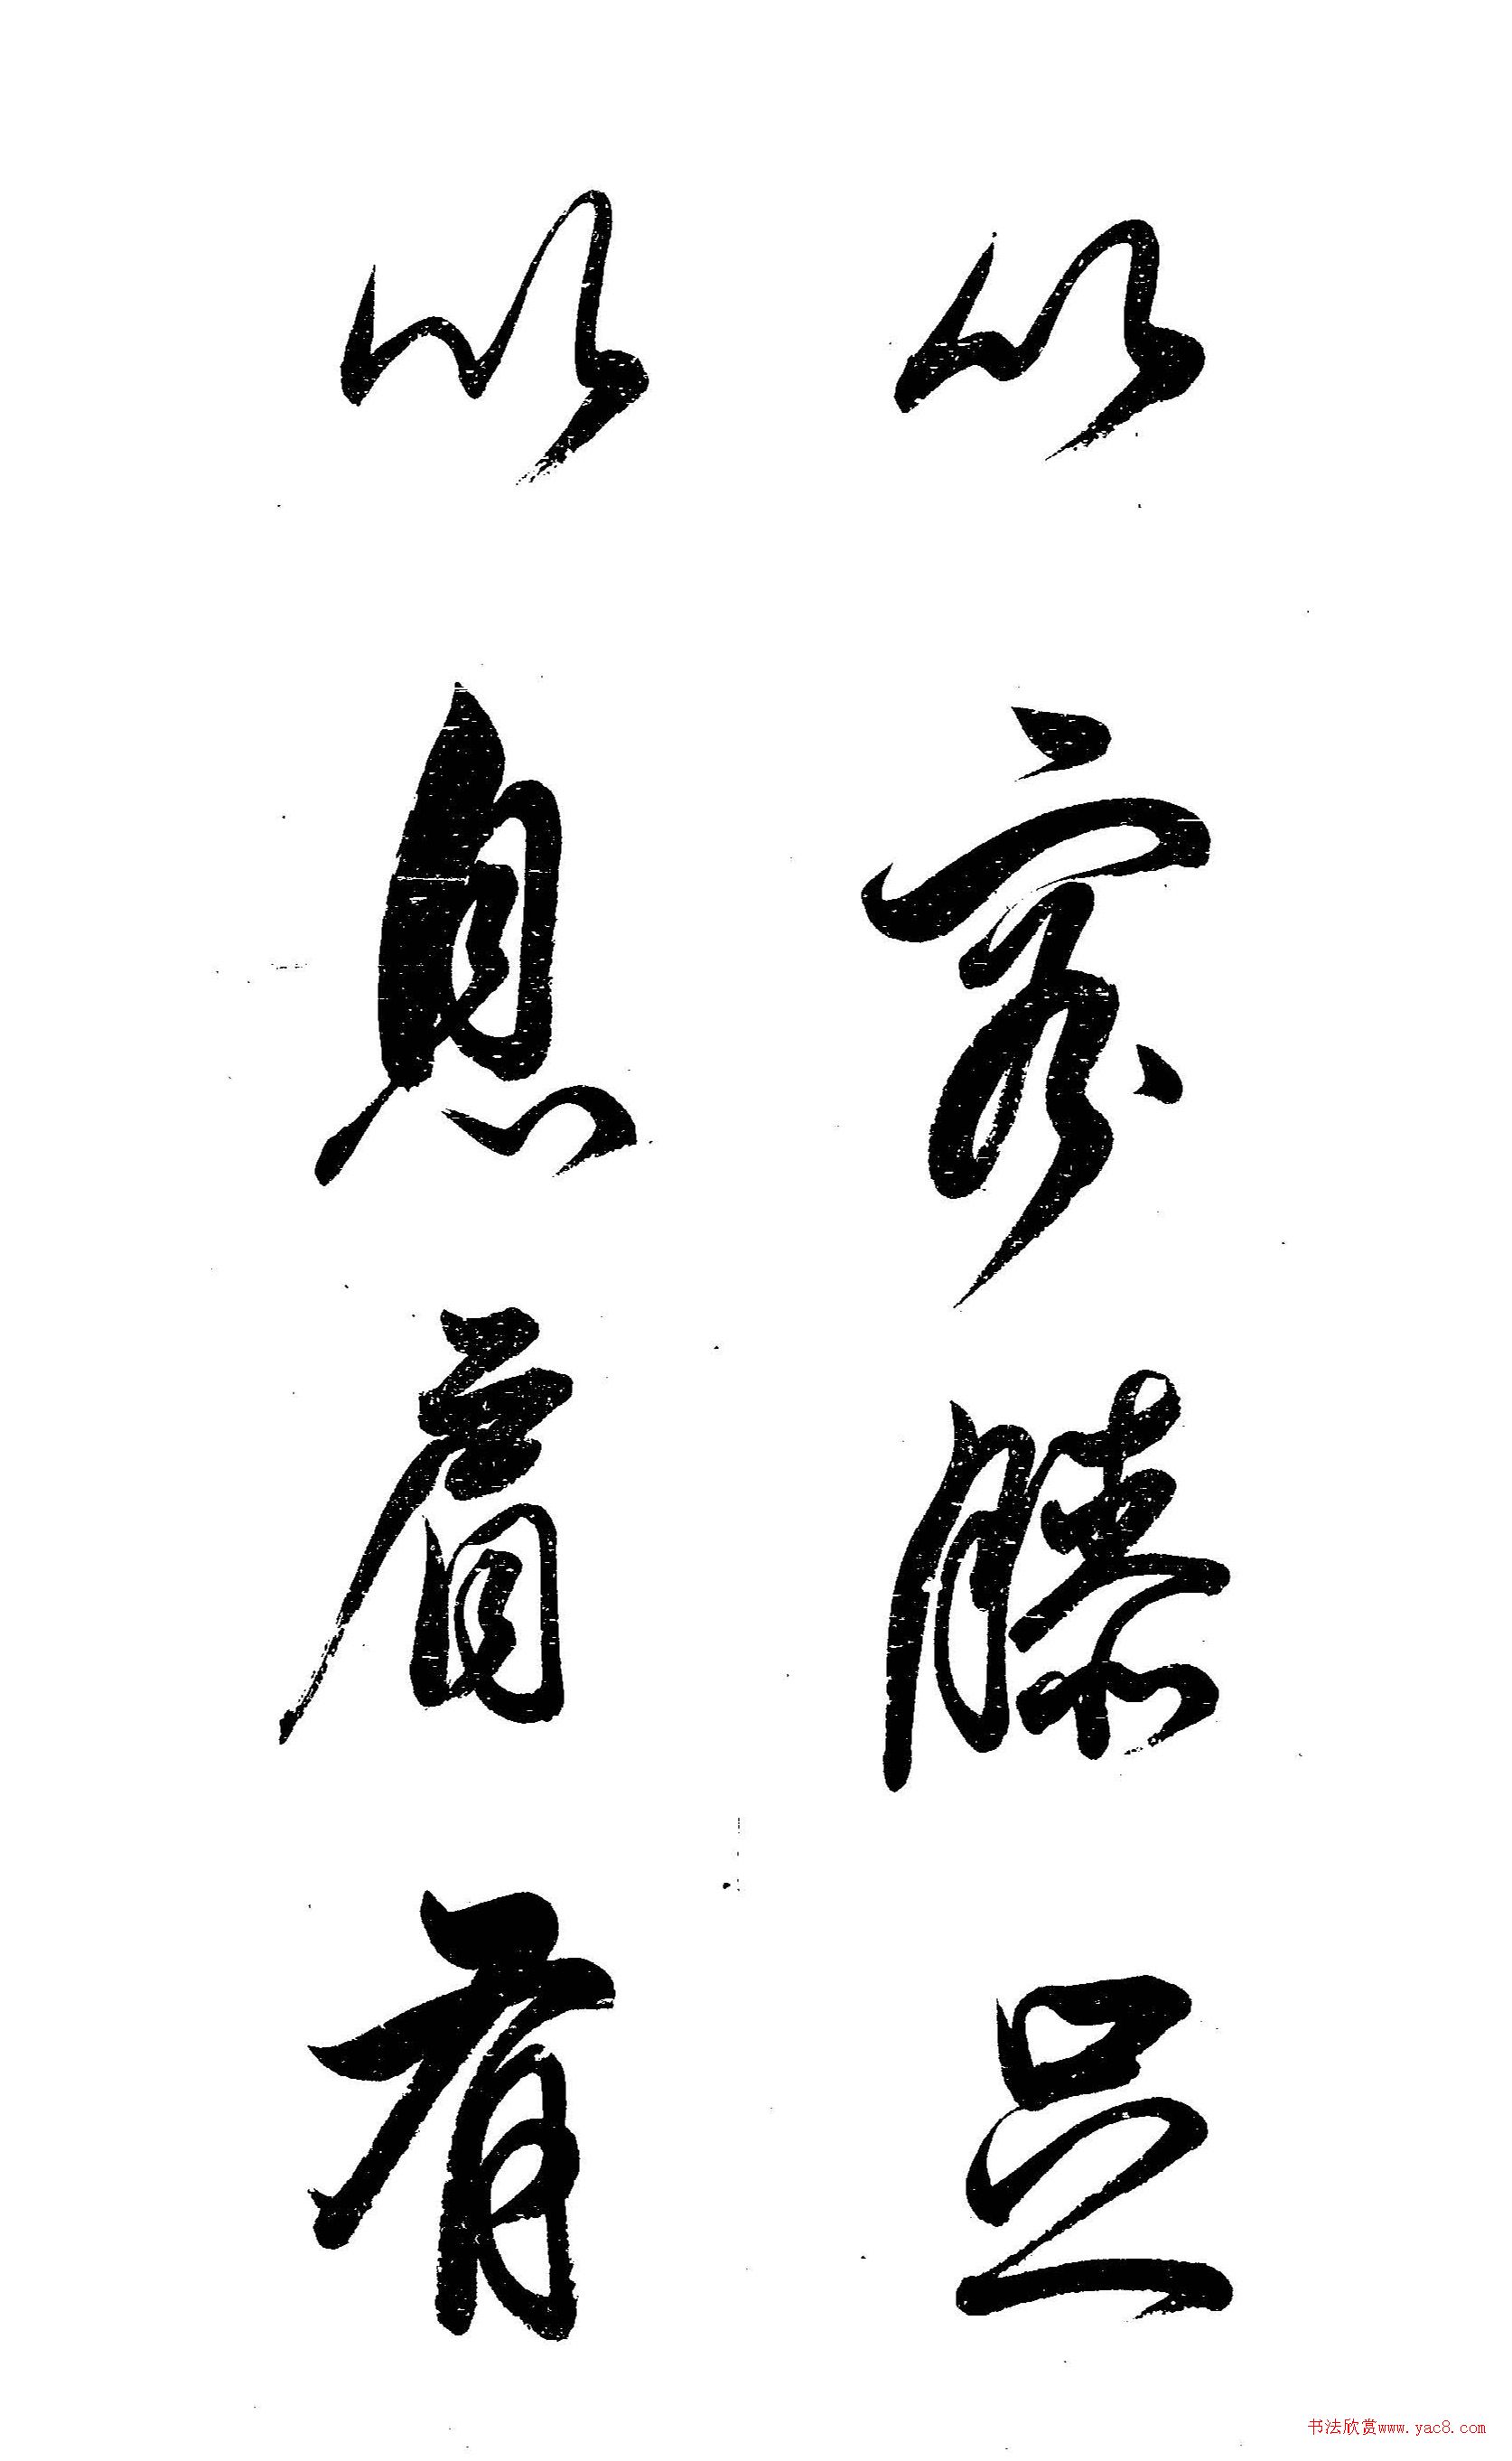 以容膝足
以息肩有
书法欣赏www.yac8.com